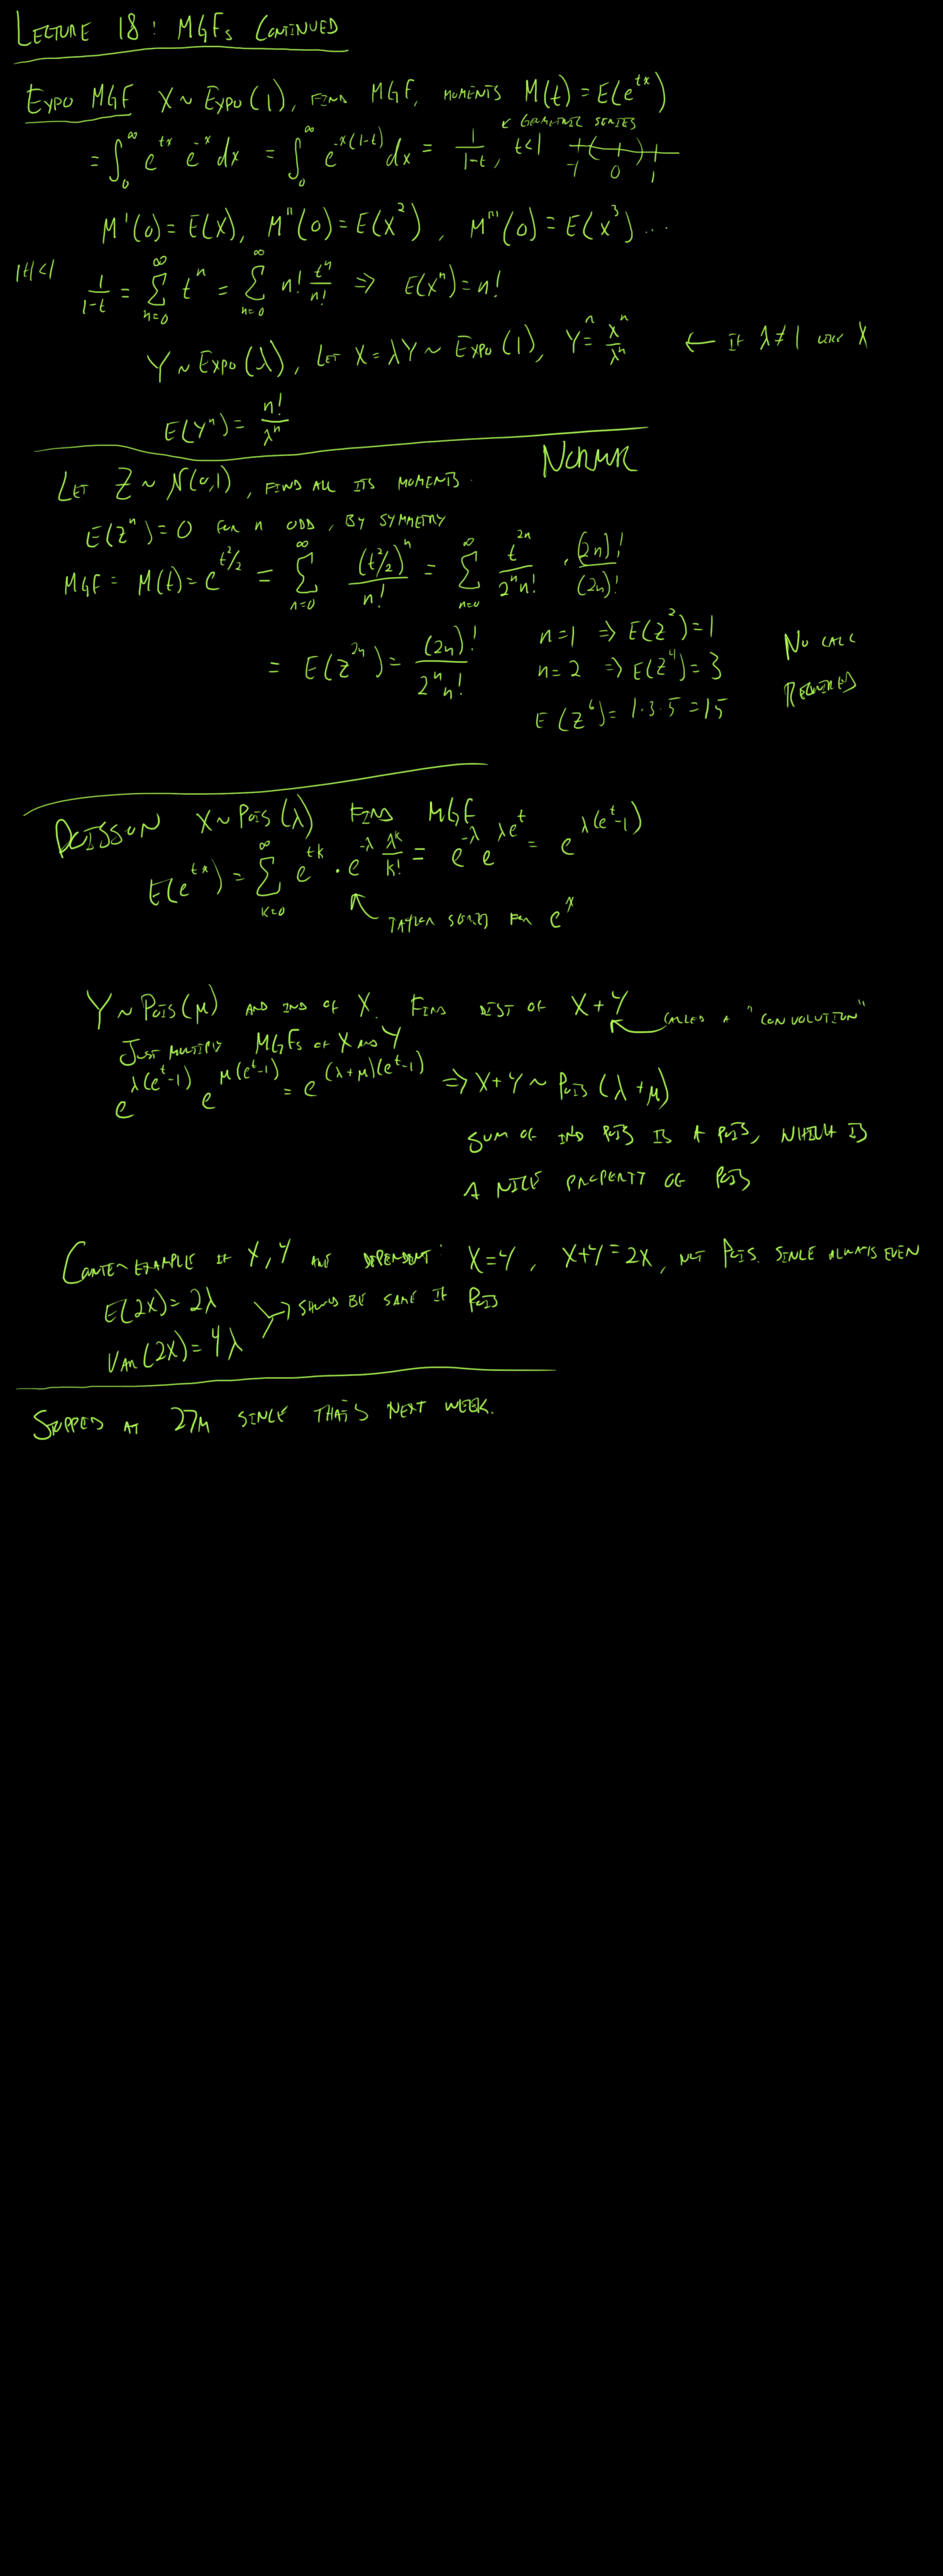 LECTURE 18: MGFs CONTINUED
EXPO MGF X ~ EXPO(1), FIND MGF, MOMENTS M(t) = E(e^{tx})
↙ GEOMETRIC SERIES
= ∫_0^∞ e^{tx} e^{-x} dx = ∫_0^∞ e^{-x(1-t)} dx = 1/(1-t), t<1 -1 ( 0 ) 1
M'(0) = E(X), M''(0) = E(X^2), M'''(0) = E(X^3) ...
|t|<1 1/(1-t) = ∑_{n=0}^∞ t^n = ∑_{n=0}^∞ n! t^n/n! ⇒ E(X^n) = n!
Y ~ EXPO(λ), LET X = λY ~ EXPO(1), Y^n = X^n/λ^n ← IF λ ≠ 1 X
E(Y^n) = n!/λ^n
NORMAL
LET Z ~ N(0,1), FIND ALL ITS MOMENTS.
E(Z^n) = 0 FOR n ODD, BY SYMMETRY
MGF = M(t) = e^{t^2/2} = ∑_{n=0}^∞ (t^2/2)^n/n! = ∑_{n=0}^∞ t^{2n}/(2^n n!) · (2n)!/(2n)!
= E(Z^{2n}) = (2n)!/(2^n n!) n=1 ⇒ E(Z^2) = 1 NO CALC
n=2 ⇒ E(Z^4) = 3 REQUIRED
E(Z^6) = 1·3·5 = 15
POISSON X ~ POIS(λ) FIND MGF
E(e^{tx}) = ∑_{k=0}^∞ e^{tk} · e^{-λ} λ^k/k! = e^{-λ} e^{λe^t} = e^{λ(e^t-1)}
TAYLOR SERIES FOR e^x
Y ~ POIS(μ) AND IND OF X. FIND DIST OF X+Y CALLED A "CONVOLUTION"
JUST MULTIPLY MGFs OF X AND Y
e^{λ(e^t-1)} e^{μ(e^t-1)} = e^{(λ+μ)(e^t-1)} ⇒ X+Y ~ POIS(λ+μ)
SUM OF IND POIS IS A POIS, WHICH IS
A NICE PROPERTY OF POIS
COUNTEREXAMPLE IF X,Y ARE DEPENDENT: X=Y, X+Y=2X, NOT POIS. SINCE ALWAYS EVEN
E(2X) = 2λ
SHOULD BE SAME IF POIS
VAR(2X) = 4λ
STOPPED AT 27M SINCE THAT'S NEXT WEEK.